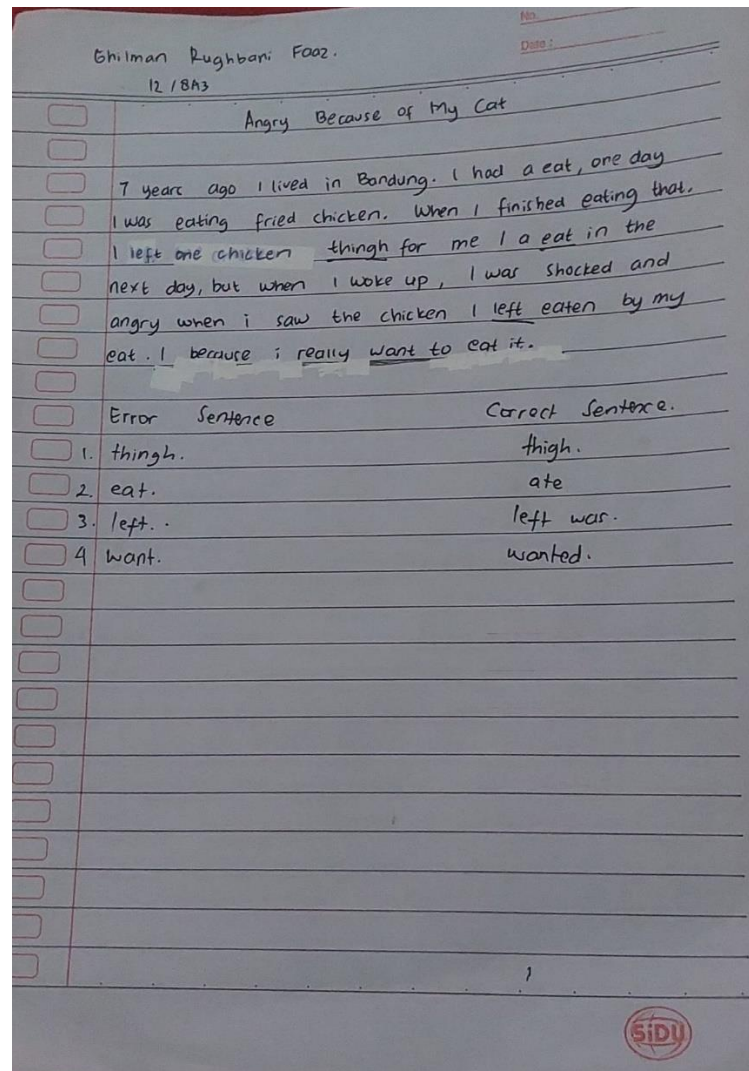 No.
Date :
Ghilman Rughbani Faaz.
12 / 8A3
Angry Because of My Cat
7 years ago I lived in Bandung. I had a eat, one day
I was eating fried chicken. When I finished eating that.
I left one chicken thingh for me I a eat in the
next day, but when I woke up, I was shocked and
angry when i saw the chicken I left eaten by my
eat. I because i really want to eat it.
Error Sentence Correct Sentence.
1. thingh. thigh.
2. eat. ate
3. left. . left was.
4 want. wanted.
SiDU